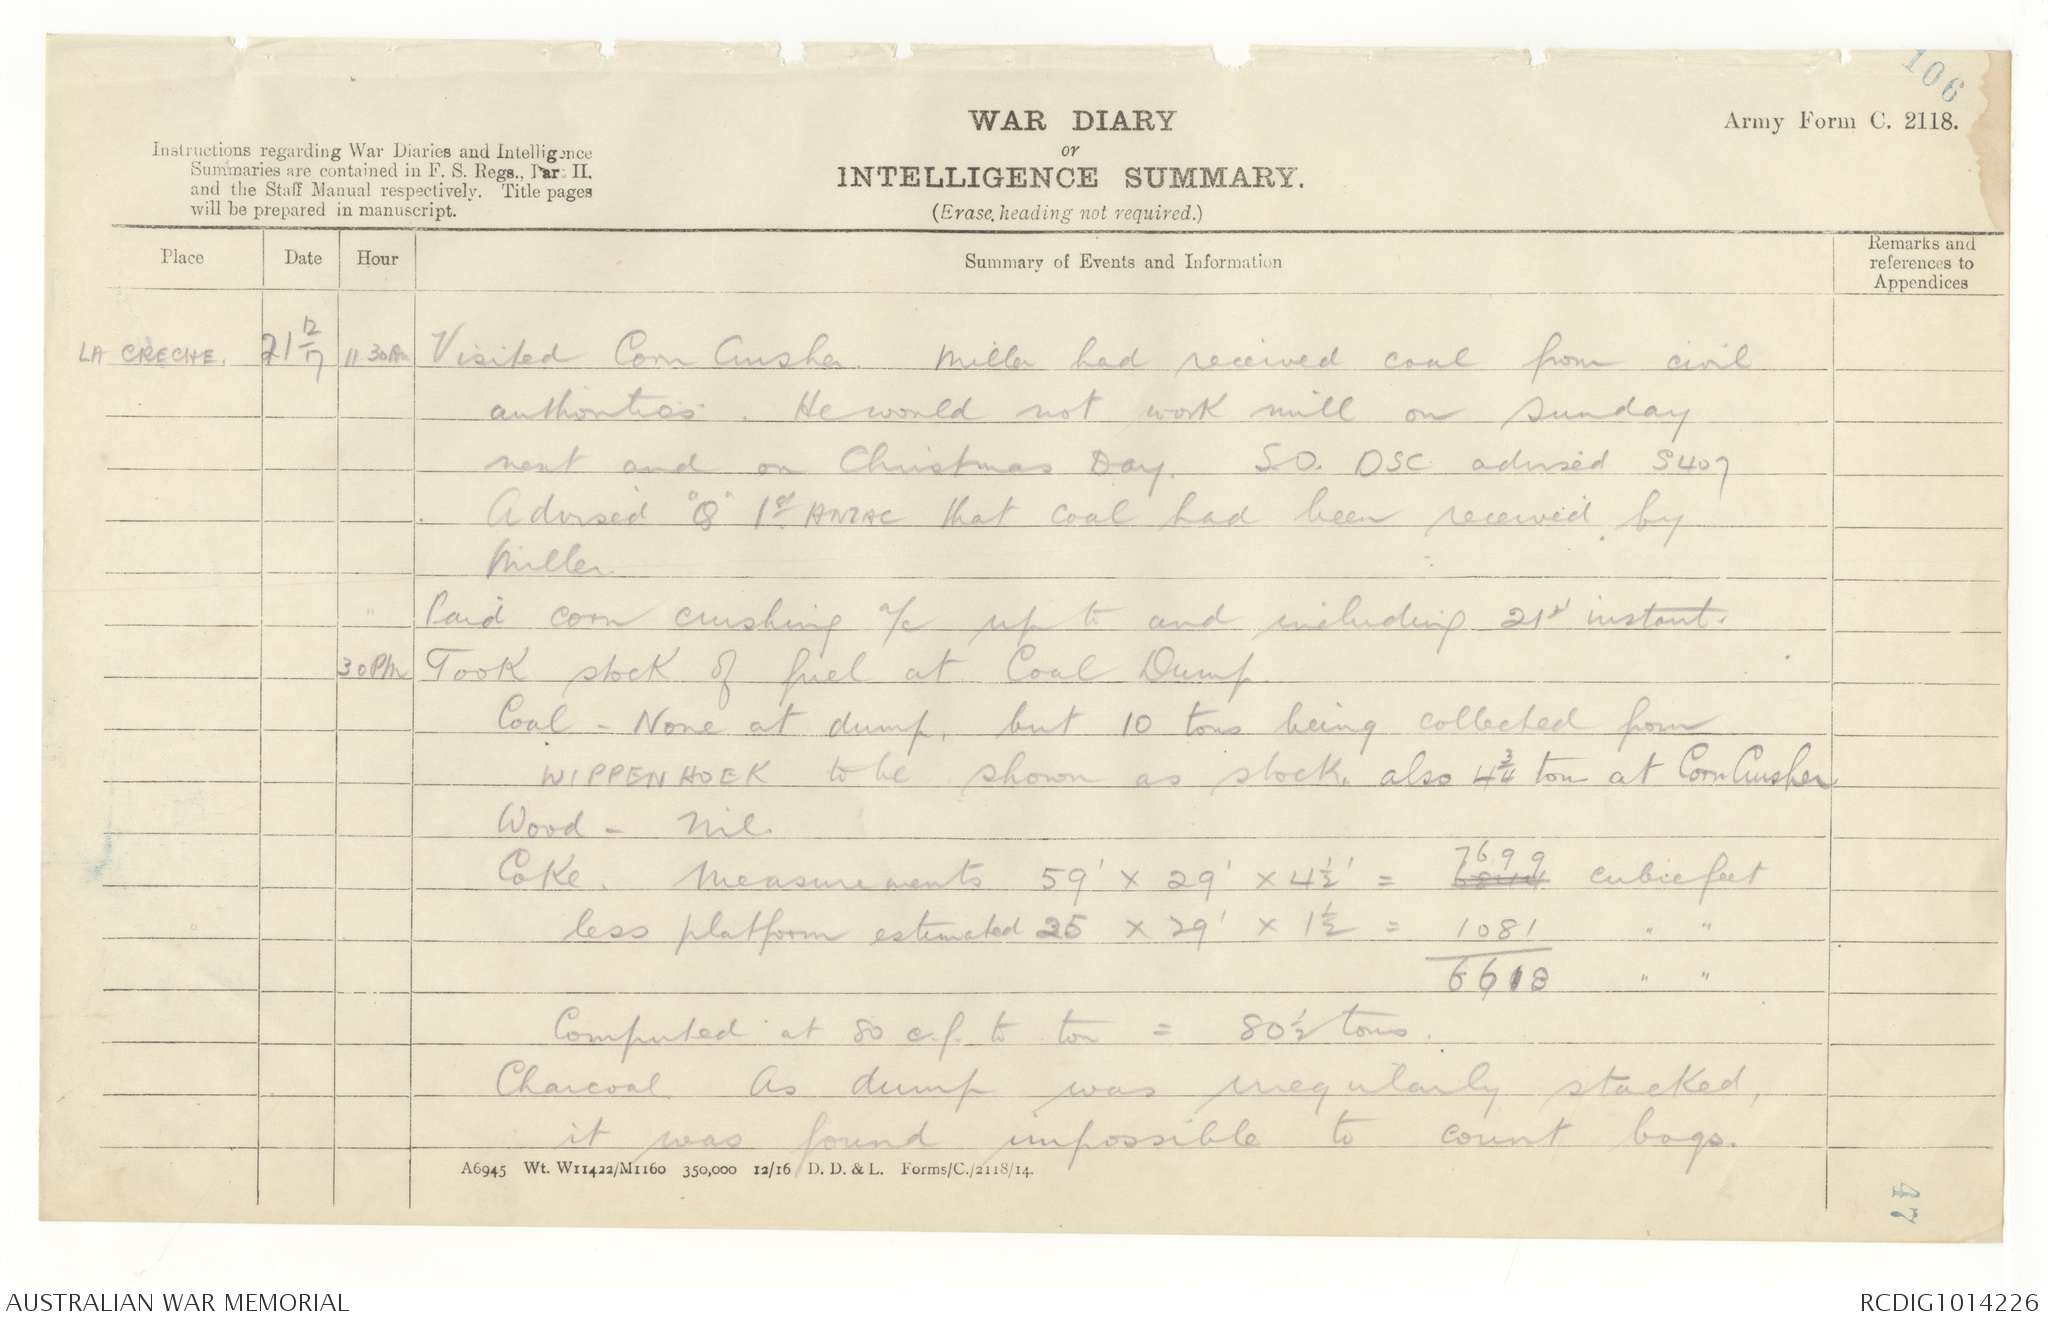 106
WAR DIARY
or
INTELLIGENCE SUMMARY.
(Erase heading not required.)
Army Form C. 2118.
Instructions regarding War Diaries and Intelligence
Summaries are contained in F. S. Regs., Part II.
and the Staff Manual respectively. Title pages
will be prepared in manuscript.
Place Date Hour Summary of Events and Information Remarks and references to Appendices
LA CRECHE. 21 12/17 11 30 Am Visited Corn Crusher. Miller had received coal from civil
authorities. He would not work mill on Sunday
next and on Christmas Day. S.O. DSC advised S407
Advised "Q" 1st ANZAC that coal had been received by
Miller.
" Paid corn crushing a/c up to and including 21st instant.
30 PM Took stock of fuel at Coal Dump
Coal - None at dump, but 10 tons being collected from
WIPPENHOEK to be shown as stock. also 4 3/4 ton at Corn Crusher
Wood - Nil.
Coke. Measurements 59' x 29' x 4 1/2' = 7699 cubic feet
less platform estimated 25 x 29' x 1 1/2 = 1081 " "
6618 " "
Computed at 80 c.f. to ton = 80 1/2 tons.
Charcoal As dump was irregularly stacked,
it was found impossible to count bags.
A6945 Wt. W11422/M1160 350,000 12/16 D. D. & L. Forms/C./2118/14.
47
AUSTRALIAN WAR MEMORIAL
RCDIG1014226